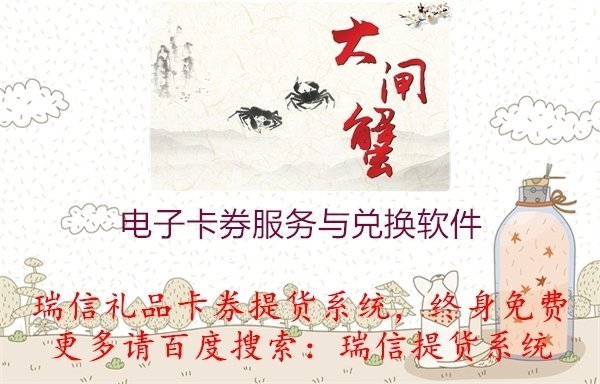 大闸蟹
电子卡券服务与兑换软件
瑞信礼品卡券提货系统，终身免费
更多请百度搜索：瑞信提货系统